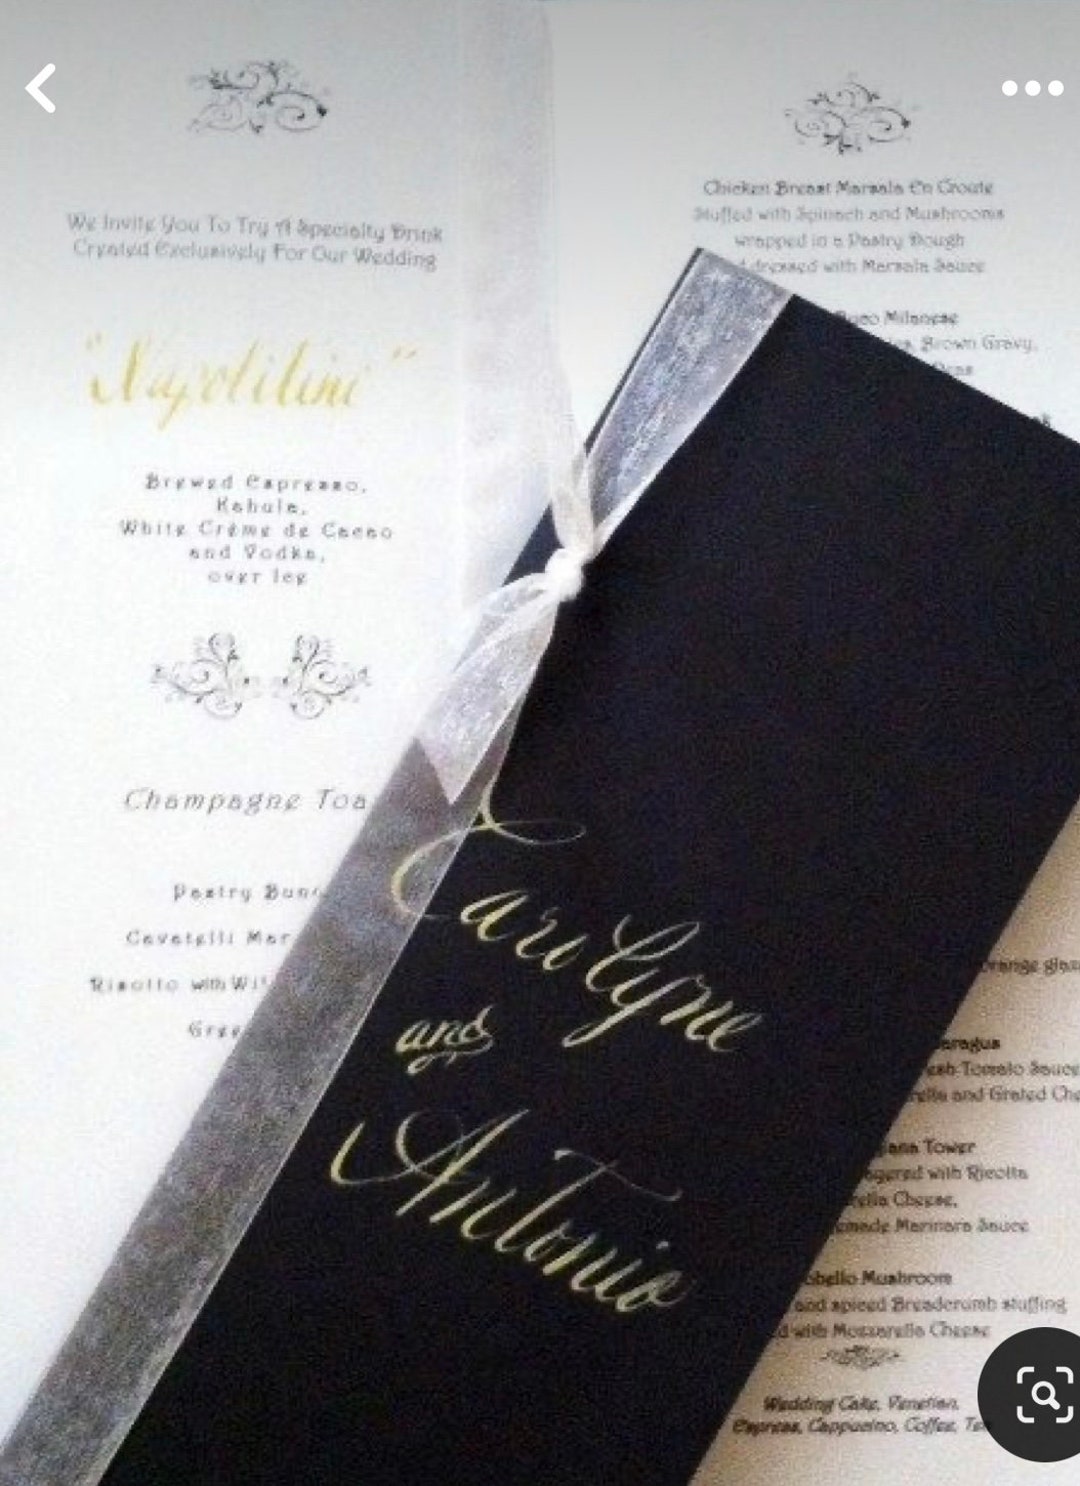 We Invite You To Try A Specialty Drink
Created Exclusively For Our Wedding
"Napolitini"
Brewed Espresso,
Kahula,
White Crème de Cacao
and Vodka,
over Ice
Champagne Toa
Pastry
Cavatelli Mar
Risotto with Wi
Gree
Chicken Breast Marsala En Croute
Stuffed with Spinach and Mushrooms
wrapped in a Pastry Dough
dressed with Marsala Sauce
Milanese
Brown Gravy,
Carolyne
and
Antonio
orange glaz
aragus
esh Tomato Sauce
rella and Grated Che
ana Tower
ayered with Ricotta
rella Cheese,
emade Marinara Sauce
obello Mushroom
and spiced Breadcrumb stuffing
d with Mozzarella Cheese
Wedding Cake, Venetian,
Express, Cappucino, Coffee, Te